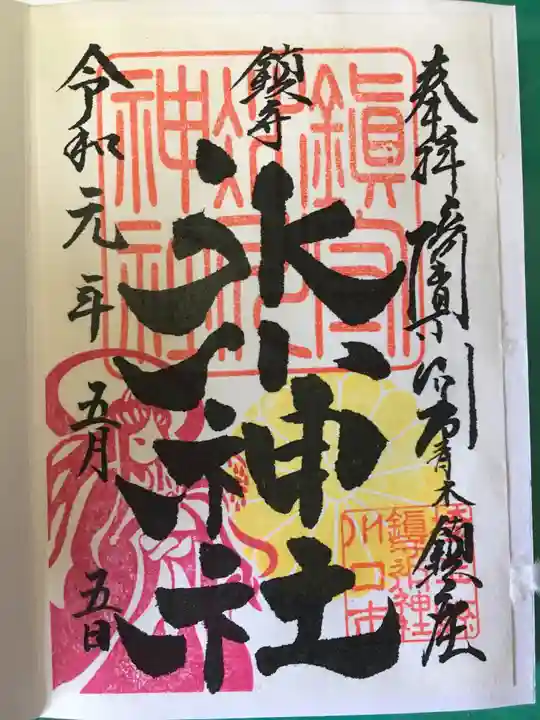 奉拝 埼玉県川口市青木鎮座
鎮守
氷川神社
令和元年五月五日
鎮守
氷川
神社
鎮守氷川神社
川口市